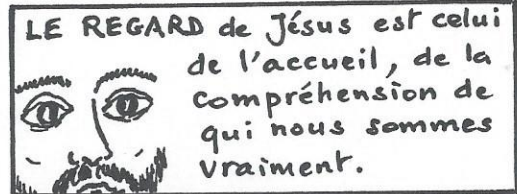 LE REGARD de Jésus est celui
de l'accueil, de la
compréhension de
qui nous sommes
vraiment.